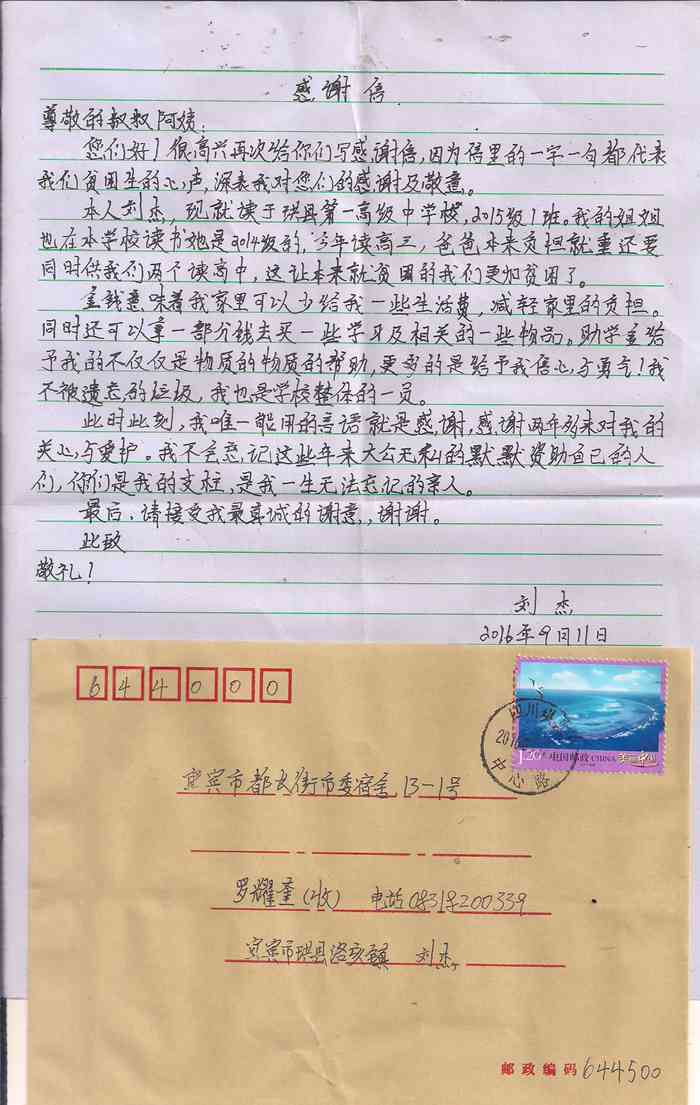 感谢信
尊敬的叔叔阿姨:
您们好!很高兴再次给你们写感谢信,因为信里的一字一句都代表
我们贫困生的心声,深表我对您们的感谢及敬意。
本人刘杰,现就读于珙县第一高级中学校,2015级1班。我的姐姐
也在本学校读书她是2014级的,今年读高三,爸爸本来负担就重还要
同时供我们两个读高中,这让本来就贫困的我们更加贫困了。
金钱意味着我家里可以少给我一些生活费,减轻家里的负担。
同时还可以拿一部分钱去买一些学习及相关的一些物品。助学金给
予我的不仅仅是物质的物质的帮助,更多的是给予我信心与勇气!我
不被遗忘的垃圾,我也是学校整体的一员。
此时此刻,我唯一能用的言语就是感谢,感谢两年多来对我的
关心与爱护。我不会忘记这些年来大公无私的默默资助自己的人
们,你们是我的支柱,是我一生无法忘记的亲人。
最后,请接受我最真诚的谢意,谢谢。
此致
敬礼!
刘杰
2016年9月11日
644000
四川珙
2016
中心路
1.20元 中国邮政 CHINA
宜宾市都长街市委宿舍13-1号
罗耀奎(收) 电话08318200339
宜宾市珙县洛亥镇 刘杰
邮政编码 644500